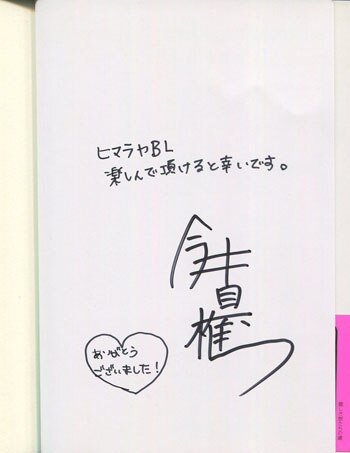 ヒマラヤBL
楽しんで頂けると幸いです。
今井真椎
ありがとう
ございました!